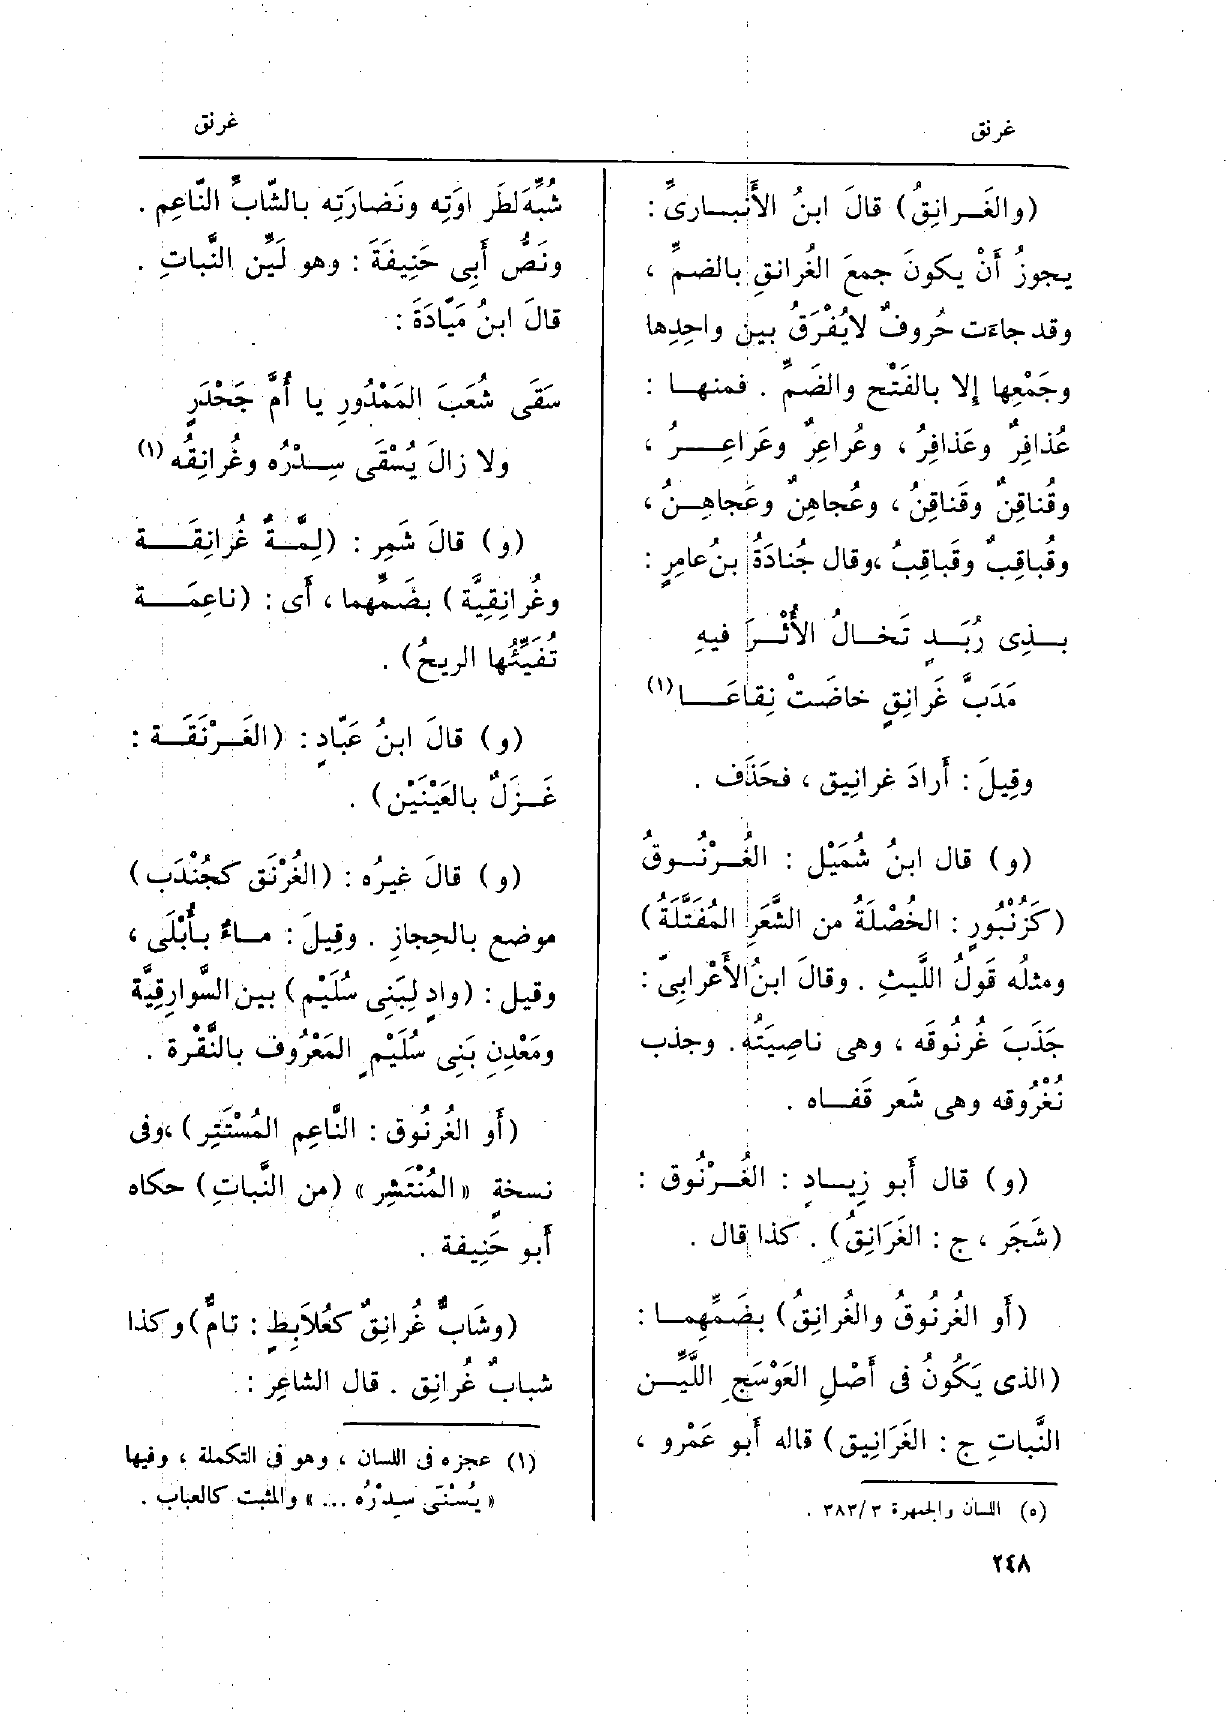 غرنق
غرنق
(والغَرانِقُ) قالَ ابنُ الأَنْبارىِّ :
يجوزُ أَنْ يكونَ جمعَ الغُرانقِ بالضمِّ ،
وقد جاءَت حُروفٌ لايُفْرَقُ بين واحِدِها
وجَمْعِها إلا بالفَتْح والضَمِّ . فمنها :
عُذافِرٌ وعَذافِرُ ، وعُراعِرٌ وعَراعِرُ ،
وقُناقِنٌ وقَناقِنُ ، وعُجاهِنٌ وعَجاهِنُ ،
وقُباقِبٌ وقَباقِبُ ،وقال جُنادَةُ بنُ عامِرٍ :
بِذِى رُبَدٍ تَخالُ الأُثْرَ فيهِ
مَدَبَّ غَرانِقٍ خاضَتْ نِقاعَا (١)
وقِيلَ : أَرادَ غرانِيق ، فحَذَف .
(و) قال ابنُ شُمَيْل : الغُرْنُوقُ
(كزُنْبُورٍ : الخُصْلَةُ من الشَّعَرِ المُفَتَّلَةُ)
ومثلُه قَولُ اللَّيثِ . وقالَ ابنُ الأَعْرابىِّ :
جَذَبَ غُرنُوقَه ، وهى ناصِيَتُه. وجذب
نُغْرُوقه وهى شَعر قَفاه .
(و) قال أبو زِيادٍ : الغُرْنُوق :
(شَجَر ، ج : الغَرَانِقُ) . كذا قال .
(أَو الغُرنُوقُ والغُرانِقُ) بضَمِّهِما :
(الذى يَكُونُ فى أَصْلِ العَوْسَجِ اللَّيِّن
النَّباتِ ج : الغَرَانِيق) قاله أَبو عَمْرو ،
(٥) اللسان والجمهرة ٣٨٣/٣ .
شُبِّهَ لطَراوَتِه ونَضارَتِه بالشّابِّ النّاعِم .
ونَصُّ أَبِى حَنِيفَةَ : وهو لَيِّن النَّباتِ .
قالَ ابنُ مَيّادَةَ :
سَقَى شُعَبَ المَمْدُورِ يا أُمَّ جَحْدَرٍ
ولا زالَ يُسْقَى سِدْرُه وغُرانِقُه (١)
(و) قالَ شَمِر : (لِمَّةٌ غُرانِقَة
وغُرانِقِيَّة) بضَمِّهما ، أَى : (ناعِمَة
تُفَيِّئُها الريحُ) .
(و) قالَ ابنُ عَبّادٍ : (الغَرْنَقَة :
غَزَلٌ بالعَيْنَيْن) .
(و) قالَ غيرُه : (الغُرْنَق كجُنْدَب)
موضع بالحِجازِ . وقِيلَ : ماءٌ بأُبْلَى ،
وقيل : (وادٍ لِبَنِى سُلَيْم) بين السَّوارِقِيَّة
ومَعْدِنِ بَنِى سُلَيْمٍ المَعْرُوف بالنَّقْرة .
(أَو الغُرنُوق : النَّاعِم المُسْتَتِر) ،وفى
نسخةٍ « المُنْتَشِر » (من النَّباتِ) حكاه
أَبو حَنِيفة .
(وشَابٌّ غُرانِقٌ كعُلاَبِطٍ : تامٌّ) وكذا
شبابٌ غُرانِق . قال الشاعِر :
(١) عجزه فى اللسان ، وهو فى التكملة ، وفيها
« يُسْتَى سِدْرُه ... » والمثبت كالعباب .
٢٤٨